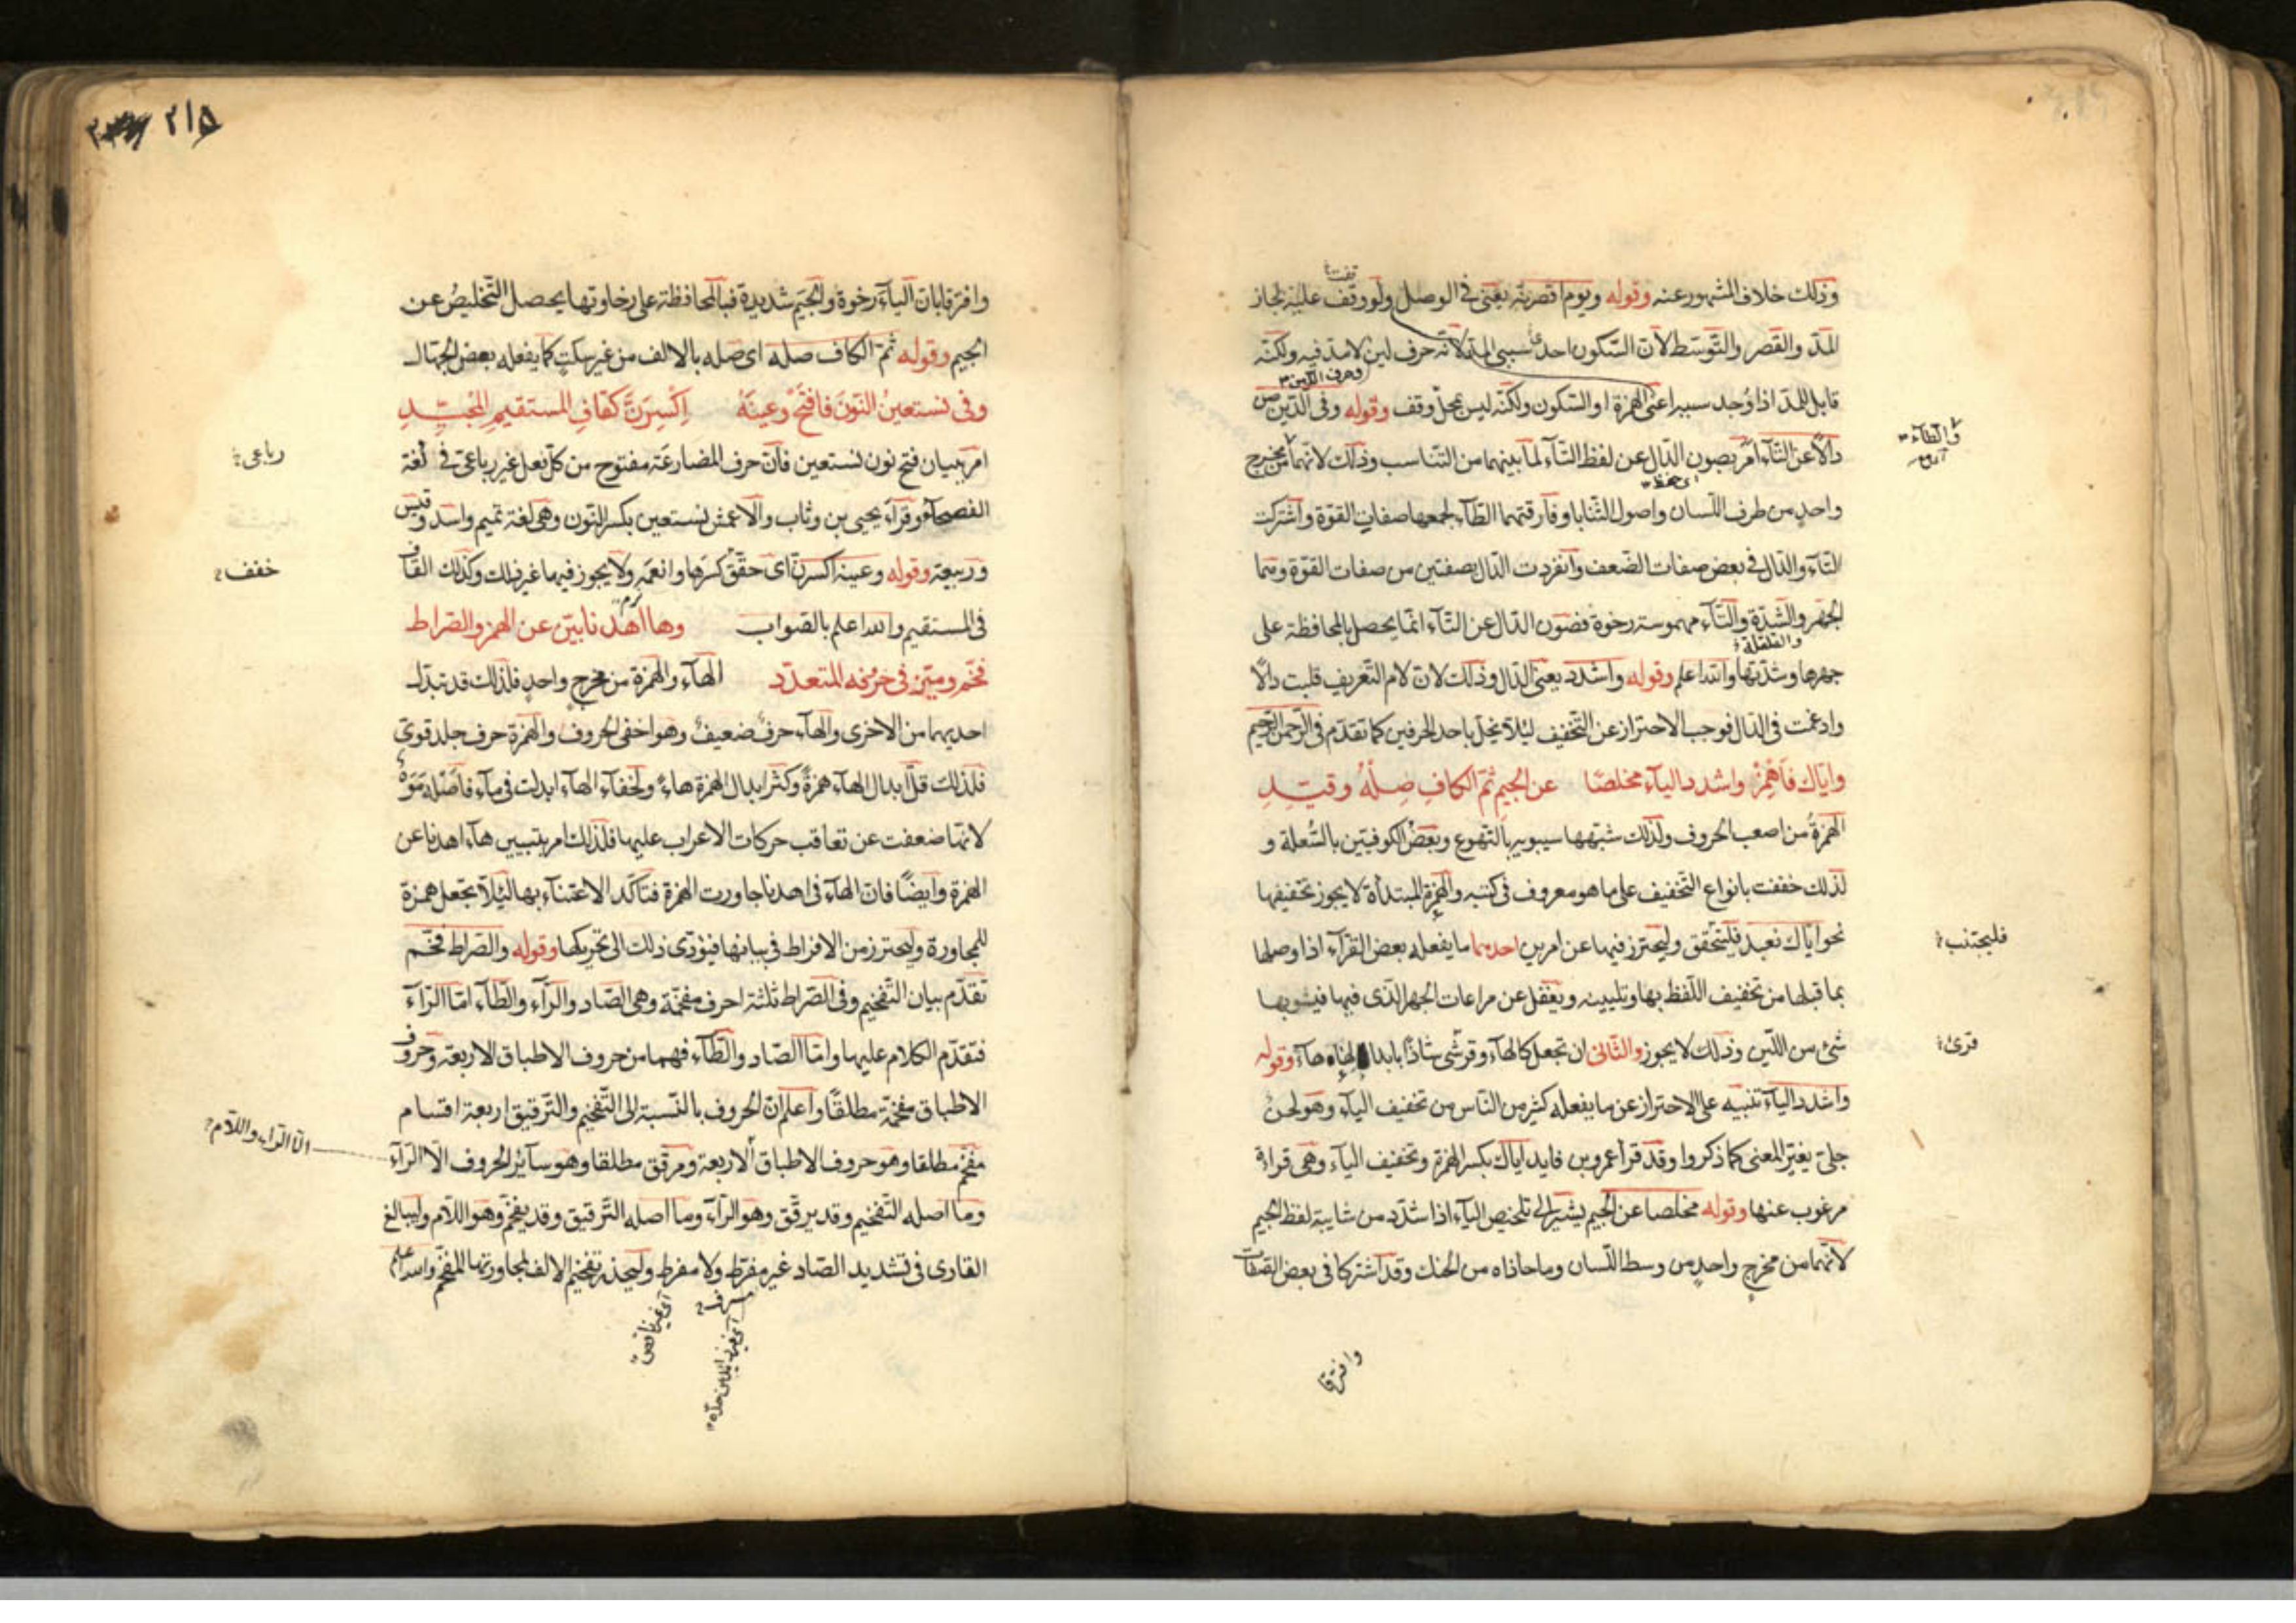 وذلك خلاف المشهور عنه وقوله ويوم اقصرنه يعنى فى الوصل ولو وقف عليه لجاز
المدّ والقصر والتّوسّط لانّ السّكون احد سببى المدّ لانّه حرف لين لا مدّ فيه ولكنّه
قابل للمدّ اذا وُجد سببه اعنى الهمزة او السّكون ولكنّه ليس محلّ وقف وقوله وفى الدّين صن
دالًا عن التّاء امر بصون الدّال عن لفظ التّاء لما بينهما من التّناسب وذلك لانّهما من مخرج
واحدٍ من طرف اللّسان واصول الثّنايا وفارقتهما الطّاء لجمعها صفات القوّة واشتركت
التّاء والدّال فى بعض صفات الضّعف وانفردت الدّال بصفتين من صفات القوّة وهما
الجهر والشّدّة والتّاء مهموسة رخوة فصون الدّال عن التّاء انّما يحصل بالمحافظة على
والقلقلة
جهرها وشدّتها والله اعلم وقوله واشدد يعنى الدّال وذلك لانّ لام التّعريف قلبت دالًا
وادغمت فى الدّال فوجب الاحتراز عن التّخفيف لئلّا يخلّ باحد الحرفين كما تقدّم فى الرّحمن الرّحيم
وايّاك فاهمز واشدد الياء مخلصًا عن الجيم ثمّ الكافِ صِلْهُ وقيّدِ
الهمزةُ من اصعب الحروف ولذلك شبّهها سيبويه بالتّهوع وبعضُ الكوفيّين بالسُّعلة و
لذلك خففت بانواع التّخفيف على ما هو معروف فى كتبه والهمزة المبتدأة لا يجوز تخفيفها
نحو ايّاك نعبد فليتحقق وليحترز فيها عن امرين احدهما ما يفعله بعض القرّاء اذا وصلها
فليجتنب
بما قبلها من تخفيف اللّفظ بها وتليينه ويغفل عن مراعات الجهر الّذى فيها فيشوبها
شئ من اللّين وذلك لا يجوز والثّانى ان تجعل كالهاء وقرئ شاذًّا بابدالها هاء وقوله
قرئ
واشدد الياء تنبيه على الاحتراز عن ما يفعله كثير من النّاس من تخفيف الياء وهو لحنٌ
جلىّ يغيّر المعنى كما ذكروا وقد قرأ عمرو بن فايد اياك بكسر الهمزة وتخفيف الياء وهى قراءة
مرغوب عنها وقوله مخلصا عن الجيم يشير الى تلخيص الياء اذا شدّد من شايبة لفظ الجيم
لانّهما من مخرج واحدٍ من وسط اللّسان وما حاذاه من الحنك وقد اشتركا فى بعض الصّفات
وافترقا
٢١٥
وافترقا بانّ الياء رخوة والجيم شديدة فبالمحافظة على رخاوتها يحصل التّخليصُ عن
الجيم وقوله ثمّ الكاف صله اى صِله بالالف من غير سكتٍ كما يفعله بعض الجهّال
وفى نستعينُ النّونَ فافتحْ وعينَهُ اِكْسِرَنَّ كقافِ المستقيمِ المُجَيّدِ
امر ببيان فتح نون نستعين فانّ حرف المضارعة مفتوح من كلّ فعل غير رباعىّ فى لغة
رباعى
الفصحاء وقرأ يحيى بن وثاب والاعمش نستعين بكسر النّون وهى لغة تميم واسد وقيس
وربيعة وقوله وعينه اكسرنّ اى حقّق كسرها وانعمه ولا يجوز فيهما غير ذلك وكذلك القاف
خفف
فى المستقيم والله اعلم بالصّواب وها اهدنا بيّن عن الهمز والصّراط
فخّم وميّز فى حرفه المتعدّد الهاء والهمزة من مخرجٍ واحدٍ فلذلك قد تبدّل
احديهما من الاخرى والهاء حرفٌ ضعيفٌ وهو اخفى الحروف والهمزة حرف جلد قوىّ
فلذلك قلّ ابدال الهاء همزةً وكثر ابدال الهمزة هاءً ولخفاء الهاء ابدلت فى ماء فاصْله مَوَهٌ
لانّها ضعفت عن تعاقب حركات الاعراب عليها فلذلك امر بتبيين هاء اهدنا عن
الهمزة وايضًا فانّ الهاء فى اهدنا جاورت الهمزة فتأكّد الاعتناء بها لئلّا تجعل همزة
للمجاورة وليحترز من الافراط فى بيانها فيؤدّى ذلك الى تحريكها وقوله والصّراط فخّم
تقدّم بيان التّفخيم وفى الصّراط ثلثة احرف مفخّمة وهى الصّاد والرّاء والطّاء امّا الرّاء
فتقدّم الكلام عليها وامّا الصّاد والطّاء فهما من حروف الاطباق الاربعة وحروف
الاطباق مفخّمة مطلقًا واعلم انّ الحروف بالنّسبة الى التّفخيم والتّرقيق اربعة اقسام
مفخّم مطلقا وهو حروف الاطباق الاربعة ومرقّق مطلقا وهو سآئر الحروف الّا الرّاء
الّا الرّاء واللّام
وما اصله التّفخيم وقد يرقّق وهو الرّاء وما اصله التّرقيق وقد يفخّم وهو اللّام وليبالغ
القارى فى تشديد الصّاد غير مفرّط ولا مفرط وليحذر تفخيم الالف لمجاورتها المفخّم والله اعلم